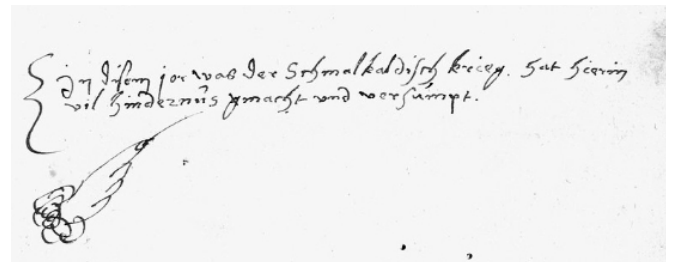 In disem jor was der Schmalkaldisch krieg. hat hierin
vil hindernus gmacht und versumpt.